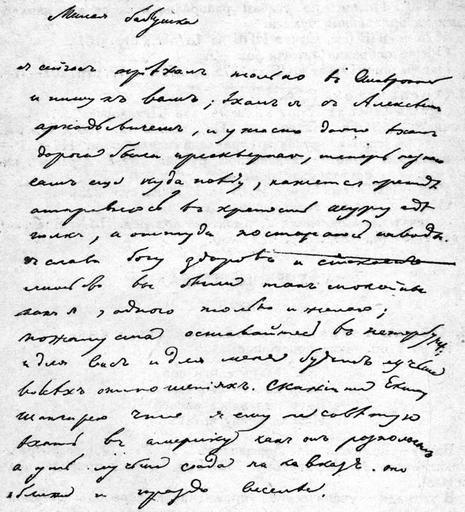 Милая бабушка
я сейчас приѣхалъ только въ Ставрополь
и пишу къ вамъ; ѣхалъ я съ Алексѣемъ
Аркадьевичемъ, и ужасно долго ѣхалъ
дорога была прескверная, теперь не знаю
самъ еще куда поѣду, кажется прежде
отправлюсь въ крепость шуру, гдѣ
полкъ, а оттуда постараюсь на воды.
Я слава богу здоровъ и спокоенъ
лишь бы вы были такъ спокойны
какъ я, одного только и желаю;
пожалуйста оставайтесь въ петербургѣ
и для васъ и для меня будетъ лучше
во всѣхъ отношеніяхъ. Скажите Екиму
Шангирею что я ему не совѣтую
ѣхать въ америку какъ онъ располагалъ
а ужъ лучше сюда на кавказъ. оно
и ближе и гораздо веселѣе